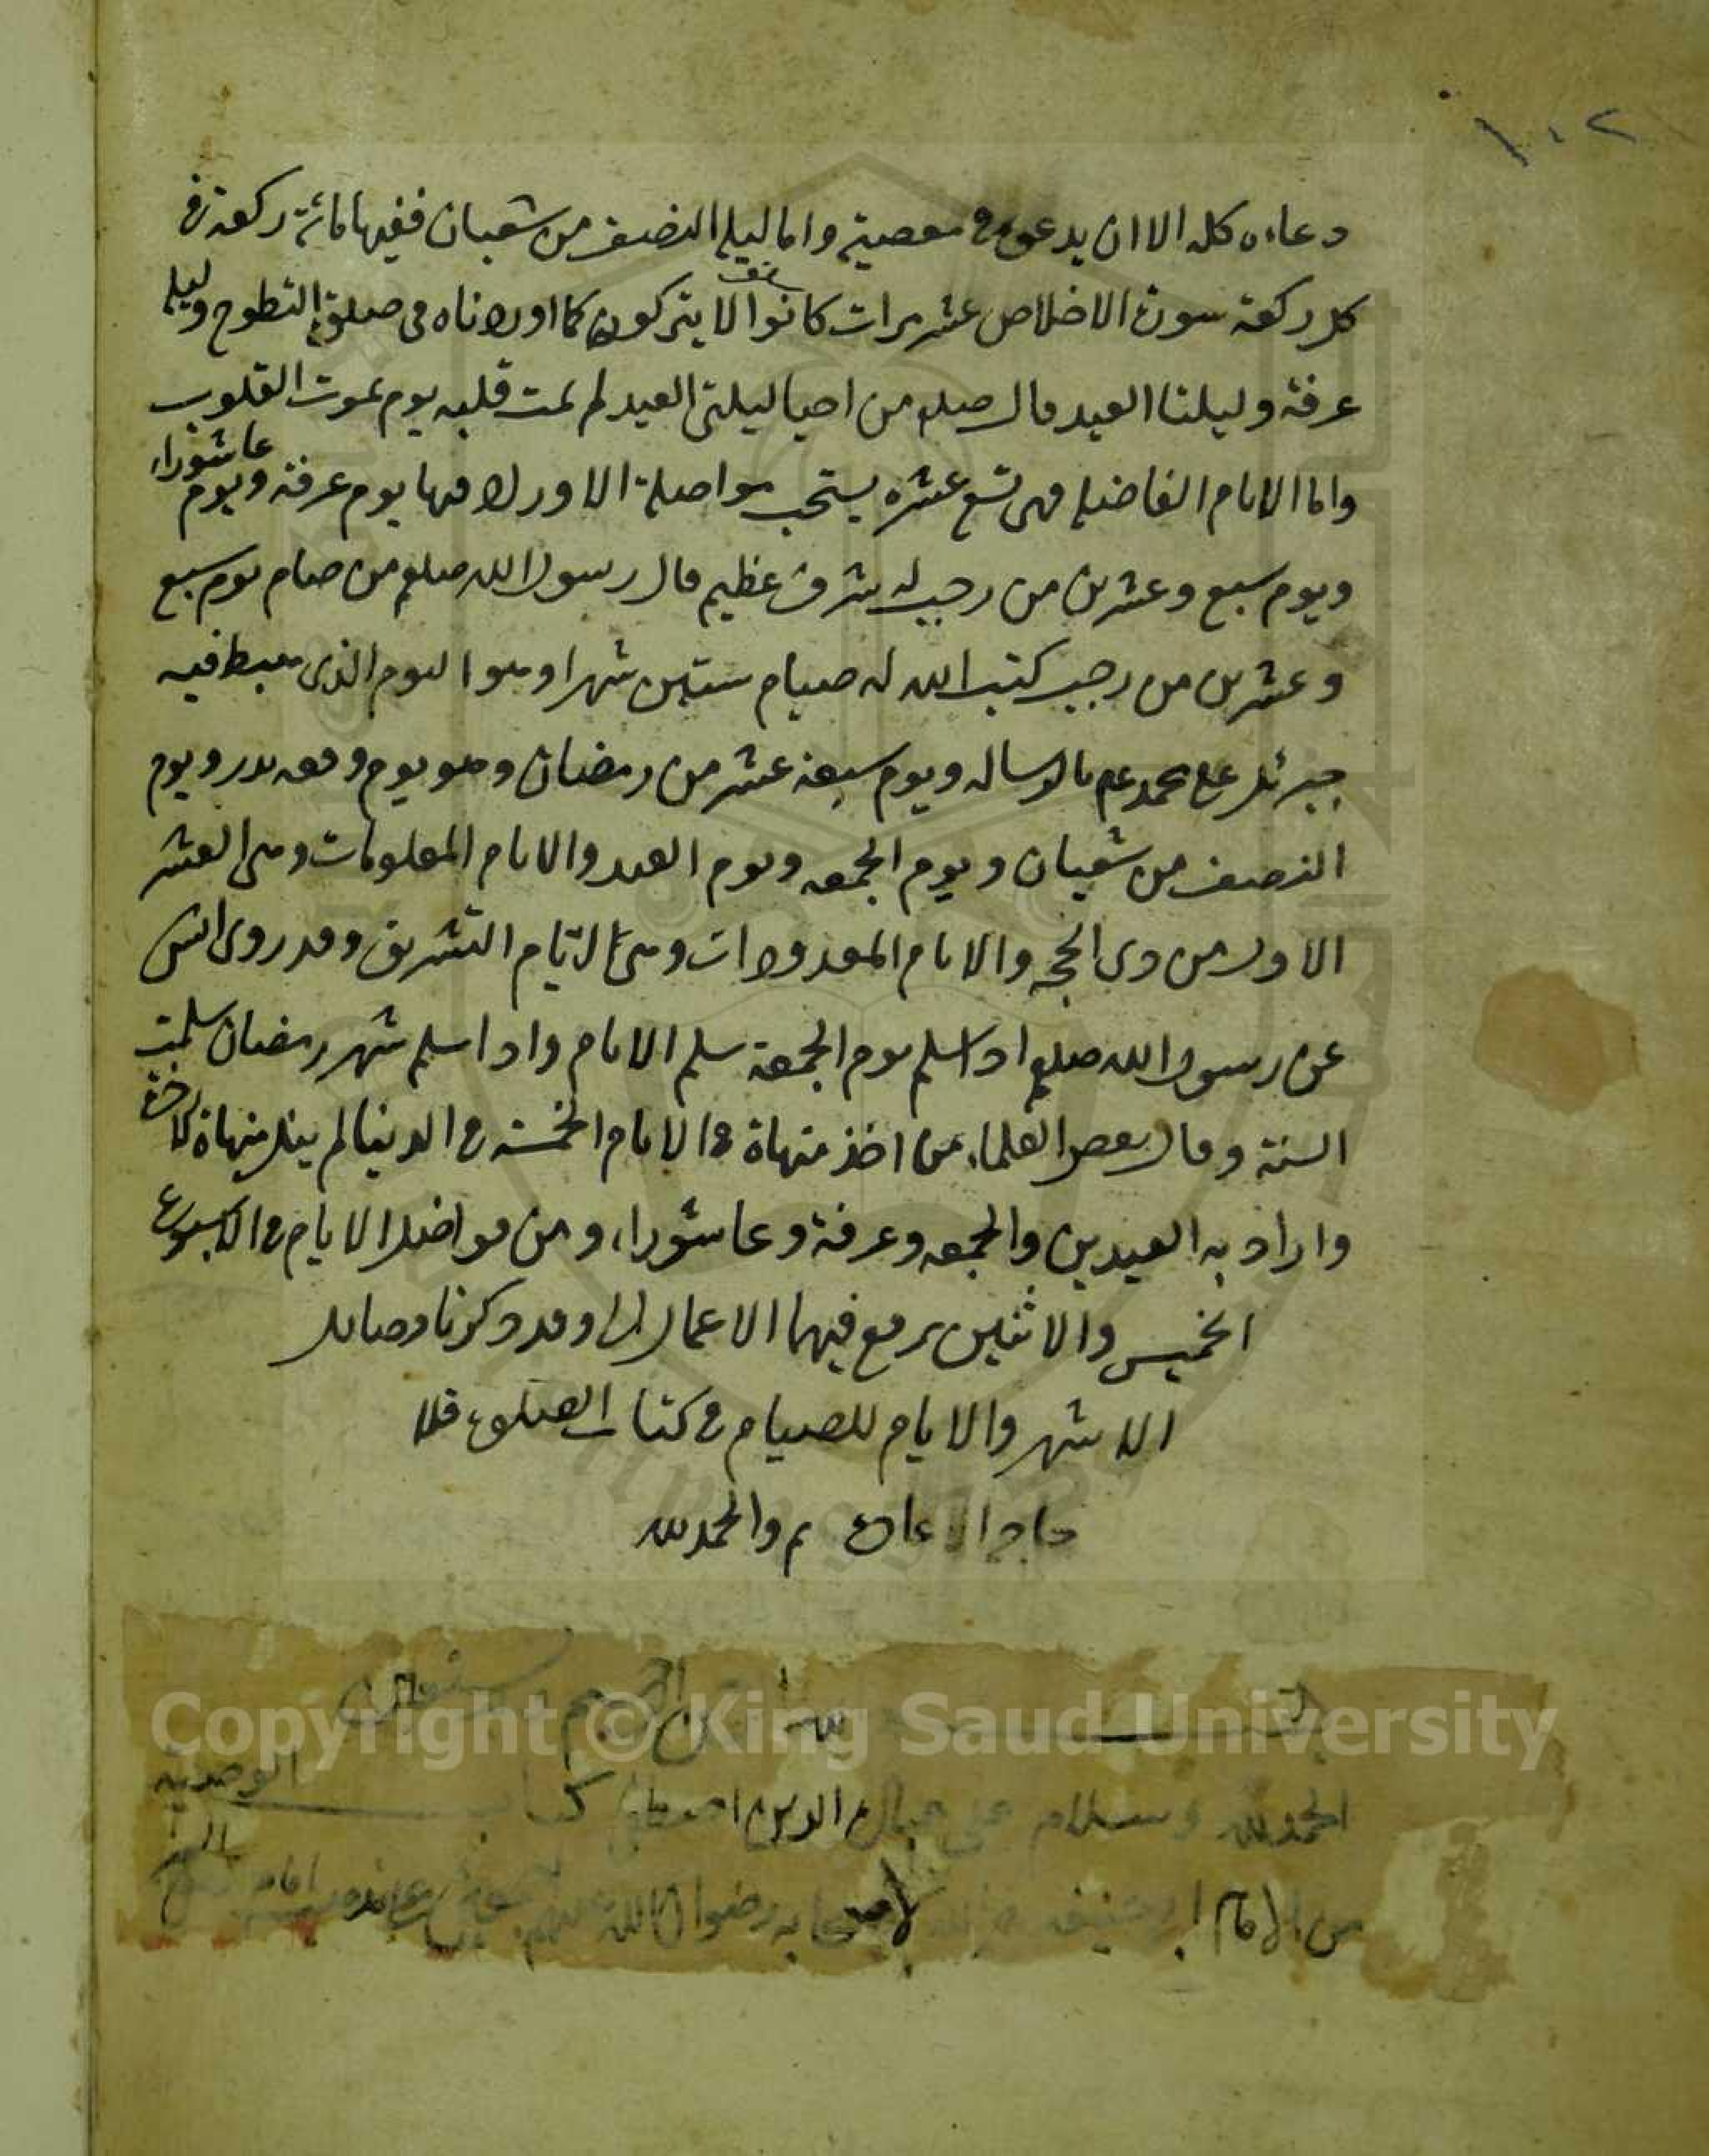 ١٠٢
دعاءه كله الا ان يدعو في معصية واما ليلة النصف من شعبان ففيها مائة ركعة في
كل ركعة سورة الاخلاص عشر مرات كانوا لا يتركون كما اوردناه في صلوة التطوع وليلة
عرفة وليلتا العيد قال صلعم من احيا ليلتى العيد لم يمت قلبه يوم يموت القلوب
واما الايام الفاضلة فهى تسع عشره يستحب مواصلة الاوراد فيها يوم عرفة ويوم عاشوراء
ويوم سبع وعشرين من رجب له شرف عظيم قال رسول الله صلعم من صام يوم سبع
وعشرين من رجب كتب الله له صيام ستين شهرا وهو اليوم الذى هبط فيه
جبرئل على محمد عم بالرساله ويوم سبعة عشر من رمضان وهو يوم وقعه بدر ويوم
النصف من شعبان ويوم الجمعه ويوم العيد والايام المعلومات وهى العشر
الاول من ذى الحجه والايام المعدودات وهى ايام التشريق وقد روى انس
عن رسول الله صلعم اذا سلم يوم الجمعة سلم الايام واذا سلم شهر رمضان سلمت
السنة وقال بعض العلماء من اخذ منهاة في الايام الخمسة في الدنيا لم ينل منهاة في الاخرة
واراد به العيدين والجمعه وعرفة وعاشوراء ومن فواضل الايام في الاسبوع
الخميس والاثنين يرفع فيهما الاعمال وقد ذكرنا فضايل
الاشهر والايام للصيام في كتاب الصلوة فلا
حاجة الاعادة تم والحمد لله
الحمد لله وسلام على عباده الذين اصطفى كتاب الوصية
من الامام ابو حنيفة لاصحابه رضوان الله عليهم
Copyright © King Saud University